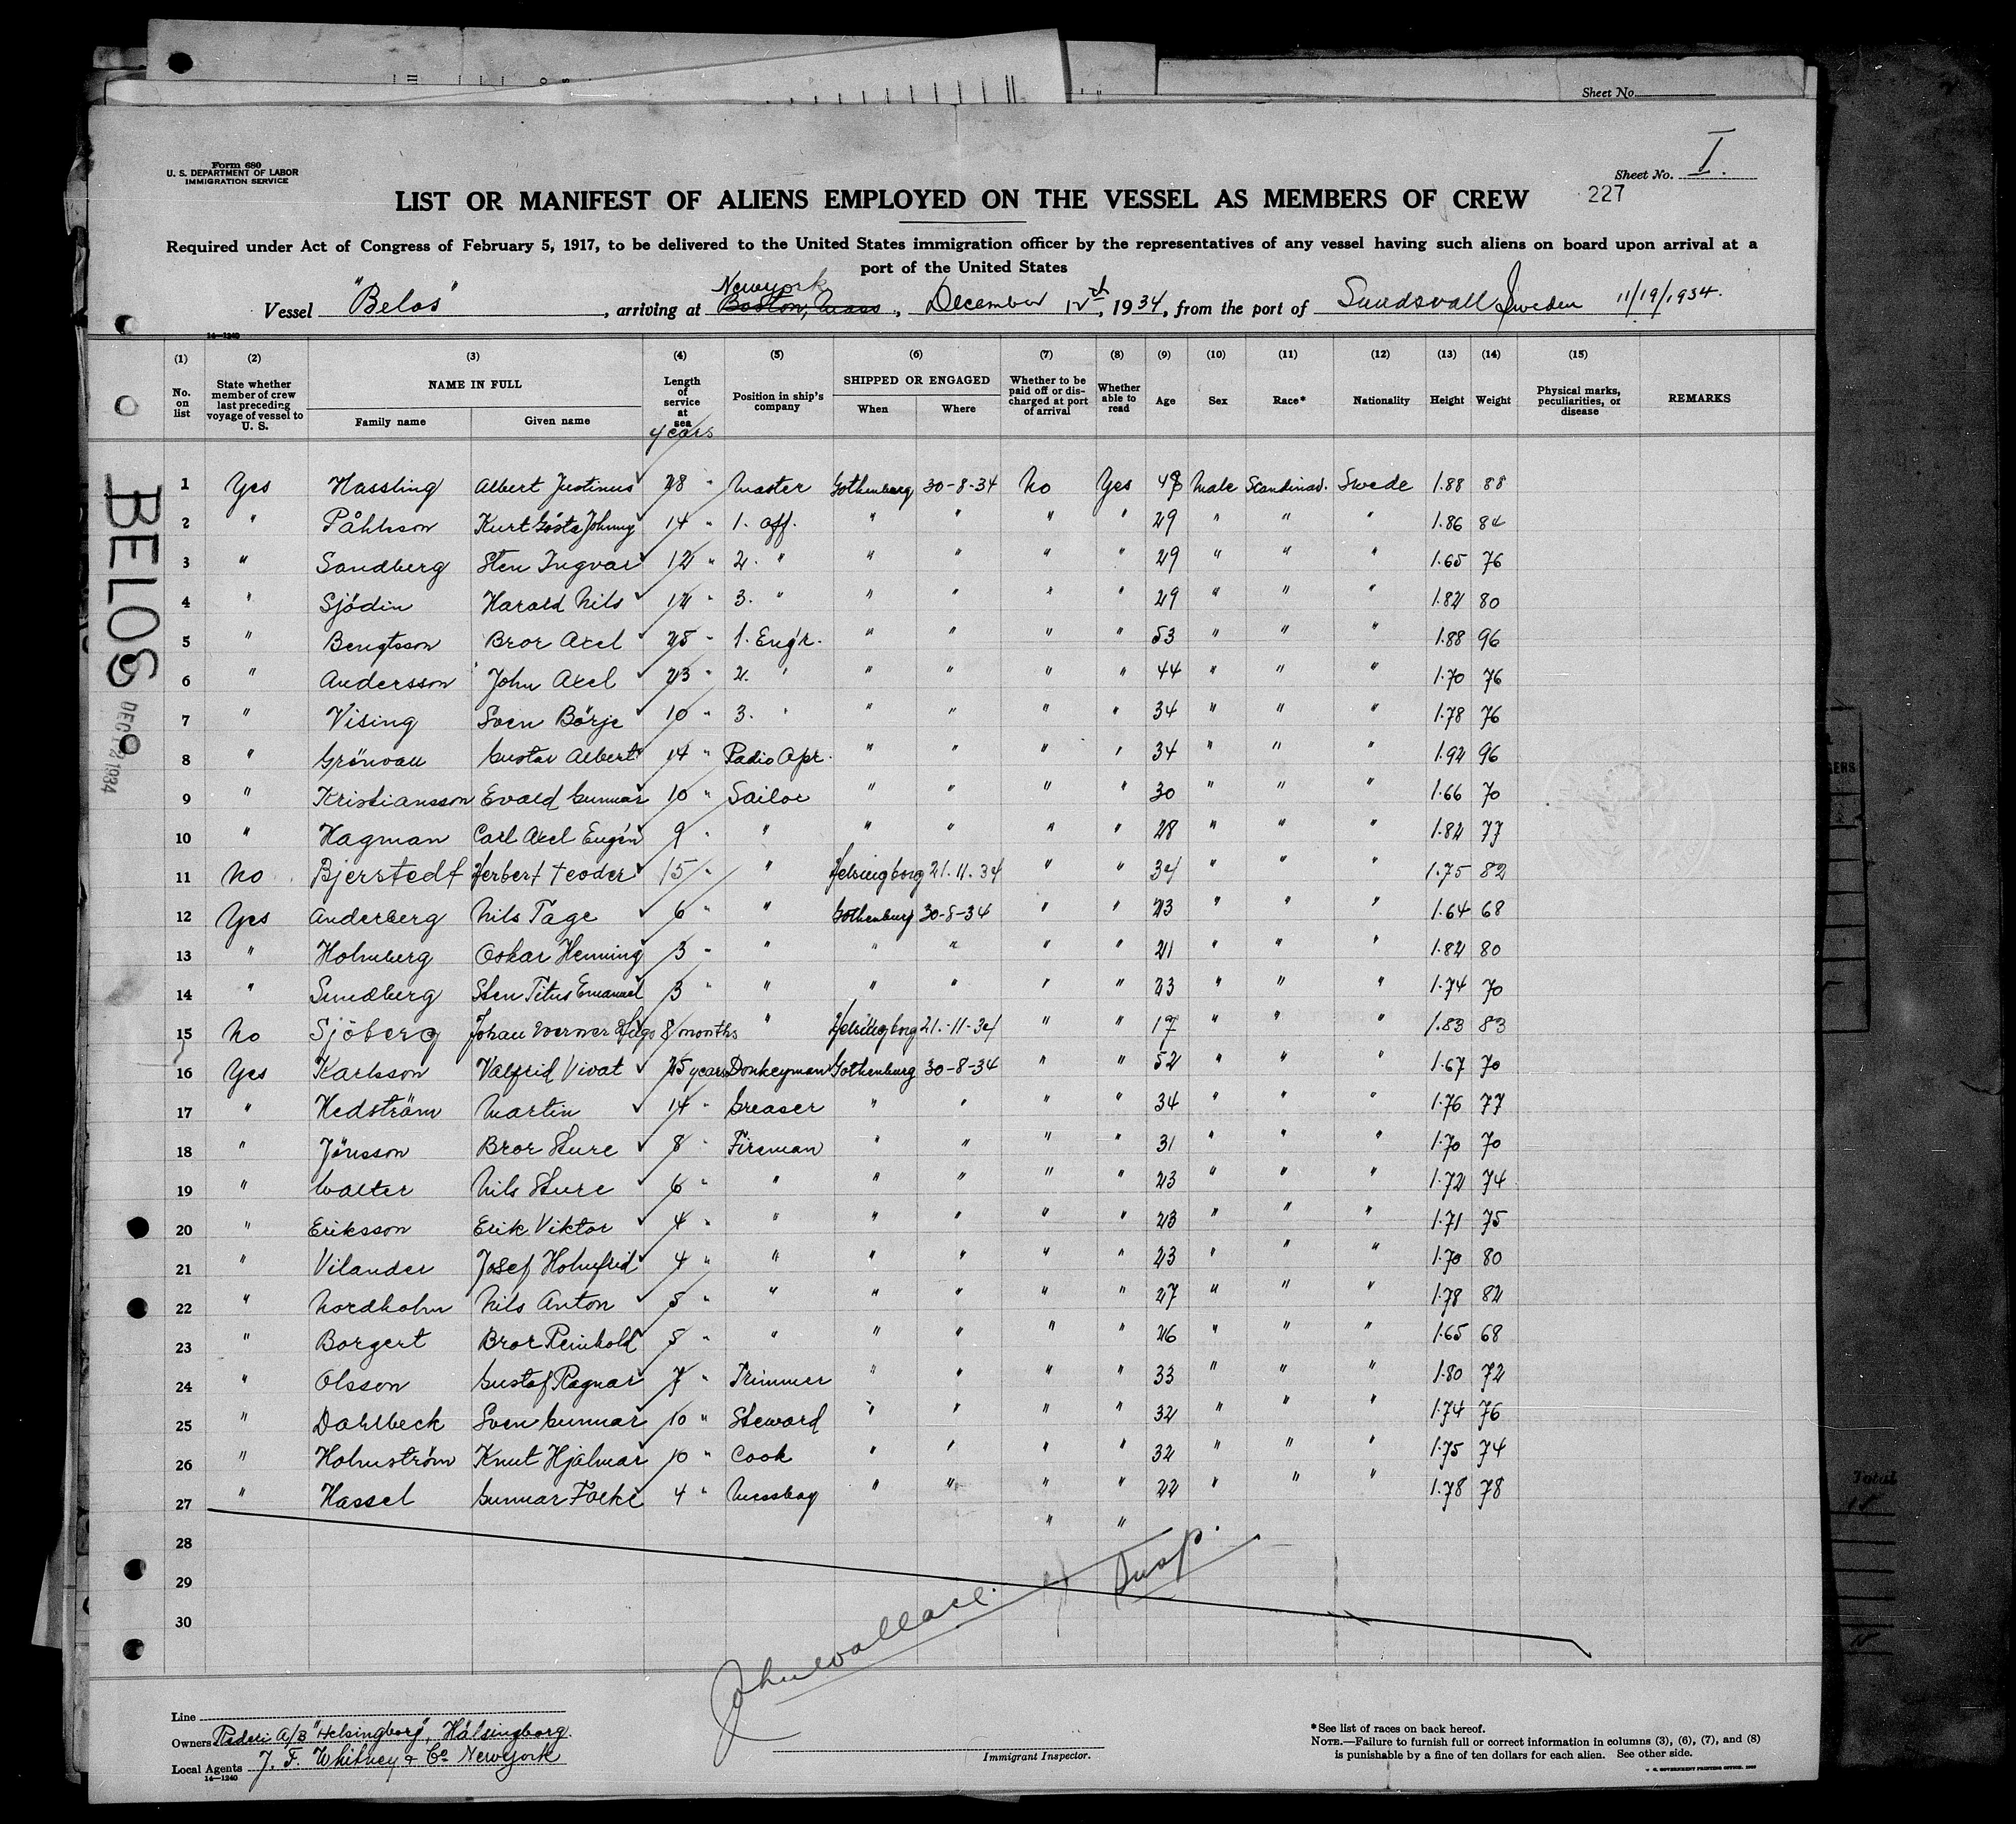 Sheet No.
Form 680
U. S. DEPARTMENT OF LABOR
IMMIGRATION SERVICE
Sheet No. I.
LIST OR MANIFEST OF ALIENS EMPLOYED ON THE VESSEL AS MEMBERS OF CREW
227
Required under Act of Congress of February 5, 1917, to be delivered to the United States immigration officer by the representatives of any vessel having such aliens on board upon arrival at a
port of the United States
Newyork
Vessel "Belos", arriving at Boston, Mass, December 12th, 1934, from the port of Sundsvall Sweden 11/19/1934.
14—1240
(1) (2) (3) (4) (5) (6) (7) (8) (9) (10) (11) (12) (13) (14) (15)
No. on list State whether member of crew last preceding voyage of vessel to U. S. NAME IN FULL Family name Given name Length of service at sea years Position in ship's company SHIPPED OR ENGAGED When Where Whether to be paid off or discharged at port of arrival Whether able to read Age Sex Race* Nationality Height Weight Physical marks, peculiarities, or disease REMARKS
1 Yes Hassling Albert Justinus 28 " Master Gothenburg 30-8-34 No Yes 48 Male Scandinav. Swede 1.88 88
2 " Påhlsson Kurt Gösta Johnny 14 " 1. off. " " " " 29 " " " 1.86 84
3 " Sandberg Sten Ingvar 12 " 2. " " " " " 29 " " " 1.65 76
4 " Sjödin Harald Nils 12 " 3. " " " " " 29 " " " 1.82 80
5 " Bengtsson Bror Axel 25 " 1. Eng'r. " " " " 53 " " " 1.88 96
6 " Andersson John Axel 23 " 2. " " " " " 44 " " " 1.70 76
7 " Vising Sven Börje 10 " 3. " " " " " 34 " " " 1.78 76
8 " Grönvall Gustav Albert 14 " Radio Opr. " " " " 34 " " " 1.92 96
9 " Kristiansson Evald Gunnar 10 " Sailor " " " " 30 " " " 1.66 70
10 " Hagman Carl Axel Eugén 9 " " " " " " 28 " " " 1.82 77
11 No Bjerstedt Herbert Teodor 15 " " Helsingborg 21.11.34 " " 34 " " " 1.75 82
12 Yes Anderberg Nils Tage 6 " " Gothenburg 30-8-34 " " 23 " " " 1.64 68
13 " Holmberg Oskar Henning 3 " " " " " " 21 " " " 1.82 80
14 " Sundberg Sten Titus Emanuel 3 " " " " " " 23 " " " 1.74 70
15 No Sjöberg Johan Werner Hugo 8 months " Helsingborg 21.-11-34 " " 17 " " " 1.83 83
16 Yes Karlsson Valfrid Vivat 25 years Donkeyman Gothenburg 30-8-34 " " 52 " " " 1.67 70
17 " Hedström Martin 14 " Greaser " " " " 34 " " " 1.76 77
18 " Jönsson Bror Sture 8 " Fireman " " " " 31 " " " 1.70 70
19 " Walter Nils Sture 6 " " " " " " 23 " " " 1.72 74
20 " Eriksson Erik Viktor 4 " " " " " " 23 " " " 1.71 75
21 " Vilander Josef Holmfrid 4 " " " " " " 23 " " " 1.70 80
22 " Nordholm Nils Anton 5 " " " " " " 27 " " " 1.78 82
23 " Borgert Bror Reinhold 5 " " " " " " 26 " " " 1.65 68
24 " Olsson Gustaf Ragnar 7 " Trimmer " " " " 33 " " " 1.80 72
25 " Dahlbeck Sven Gunnar 10 " Steward " " " " 32 " " " 1.74 76
26 " Holmström Knut Hjalmar 10 " Cook " " " " 32 " " " 1.75 74
27 " Hassel Gunnar Folke 4 " Messboy " " " " 22 " " " 1.78 78
28 " "
29
30
BELOS
DEC 12 1934
John Wallace Insp.
Immigrant Inspector.
Line
Owners Rederi A/B "Helsingborg", Hälsingborg.
Local Agents J. F. Whitney & Co. Newyork
14—1240
*See list of races on back hereof.
NOTE.—Failure to furnish full or correct information in columns (3), (6), (7), and (8)
is punishable by a fine of ten dollars for each alien. See other side.
U. S. GOVERNMENT PRINTING OFFICE
Total